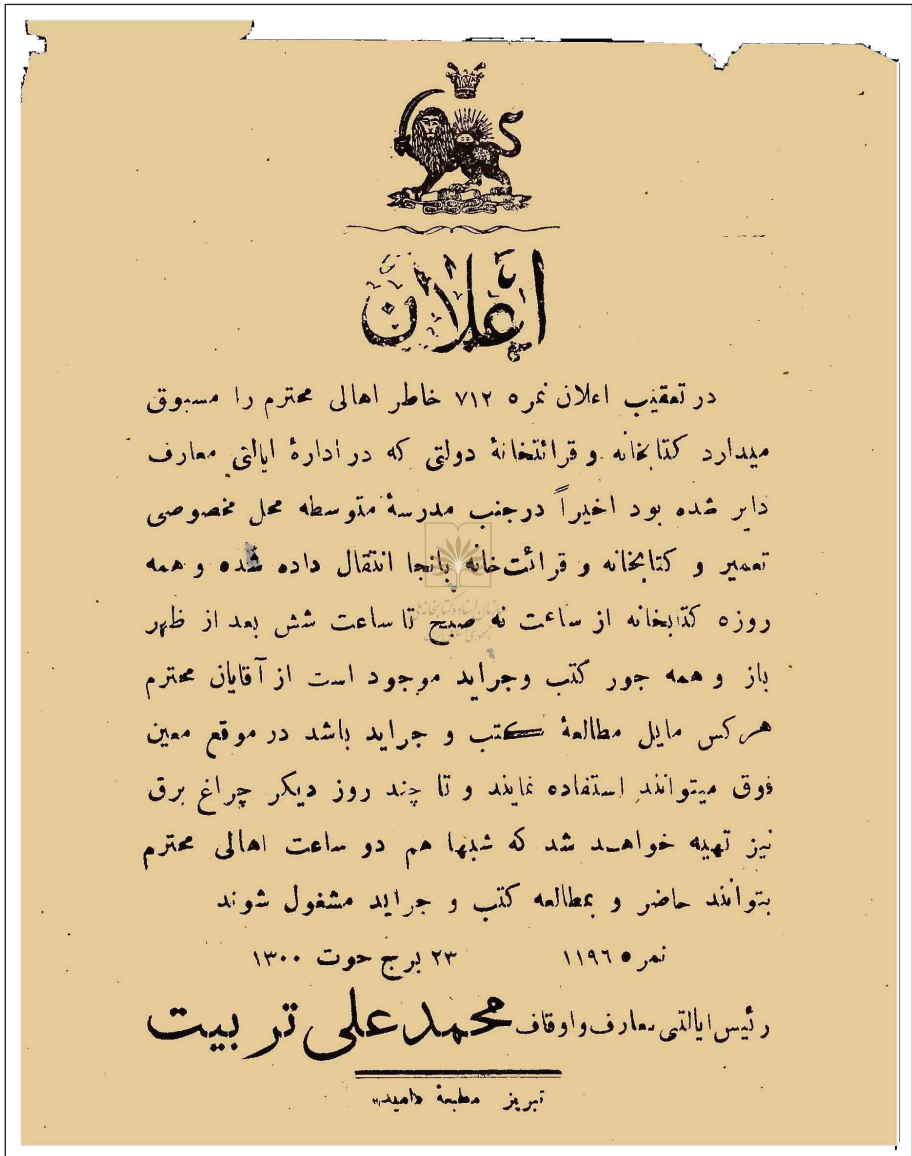 اعلان
در تعقیب اعلان نمره ۷۱۲ خاطر اهالی محترم را مسبوق
میدارد کتابخانه و قرائتخانهٔ دولتی که در ادارهٔ ایالتی معارف
دایر شده بود اخیراً درجنب مدرسهٔ متوسطه محل مخصوصی
تعمیر و کتابخانه و قرائت‌خانه بانجا انتقال داده شده و همه
روزه کتابخانه از ساعت نه صبح تا ساعت شش بعد از ظهر
باز و همه جور کتب وجراید موجود است از آقایان محترم
هرکس مایل مطالعهٔ کتب و جراید باشد در موقع معین
فوق میتوانند استفاده نمایند و تا چند روز دیکر چراغ برق
نیز تهیه خواهد شد که شبها هم دو ساعت اهالی محترم
بتوانند حاضر و بمطالعه کتب و جراید مشغول شوند
نمره ۱۱۹٦ ۲۳ برج حوت ۱۳۰۰
رئیس ایالتی معارف و اوقاف محمد علی تربیت
تبریز مطبعهٔ «امید»
سازمان اسناد و کتابخانه ملی
جمهوری اسلامی ایران